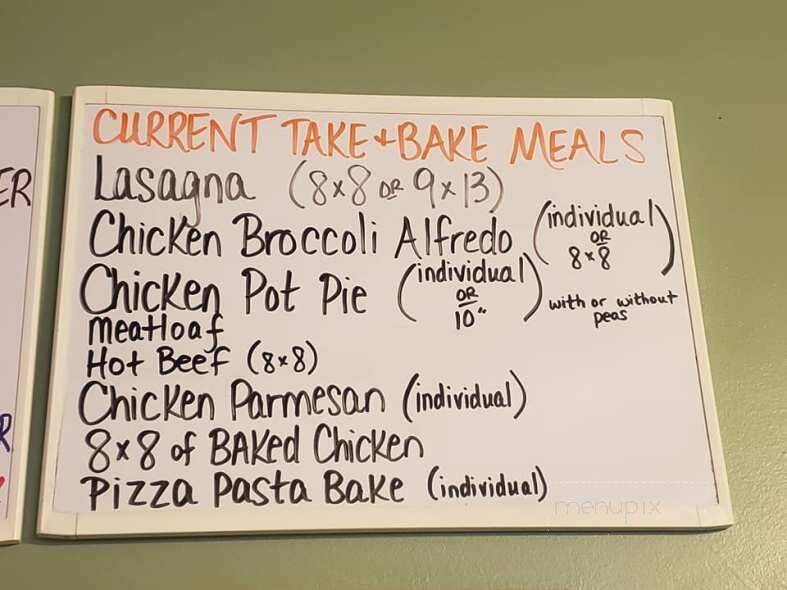 ER
R
CURRENT TAKE + BAKE MEALS
Lasagna (8x8 OR 9x13)
Chicken Broccoli Alfredo (individual OR 8x8)
Chicken Pot Pie (individual OR 10") with or without peas
Meatloaf
Hot Beef (8x8)
Chicken Parmesan (individual)
8x8 of BAKed Chicken
Pizza Pasta Bake (individual)
menupix